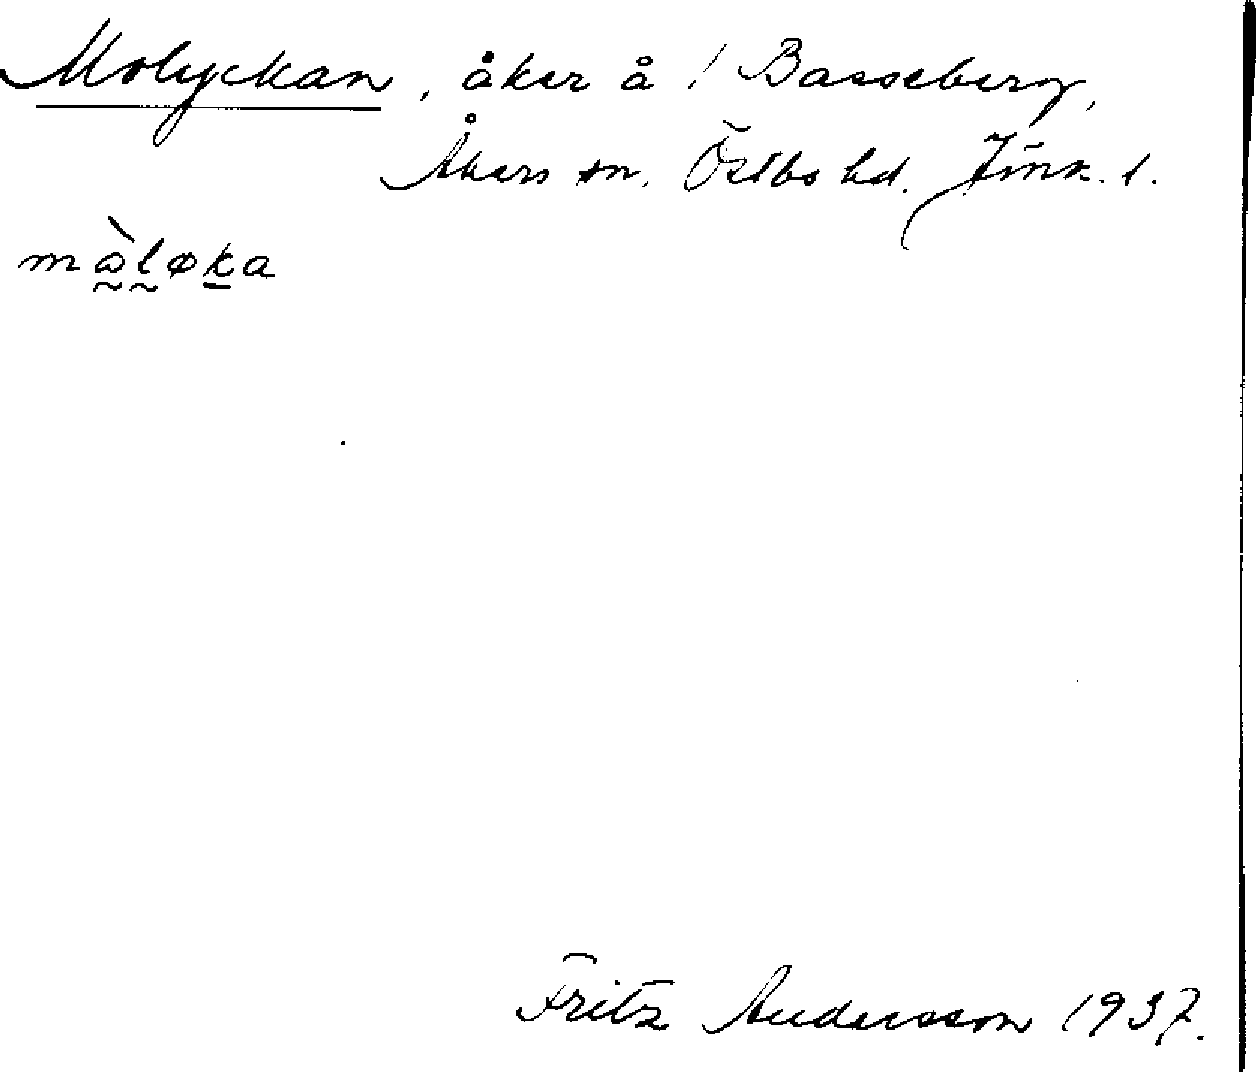 Molyckan, åker å / Basseberg,
Åkers sn. Östbo hd. Jönk. l.
màløka
Fritz Andersson 1937.